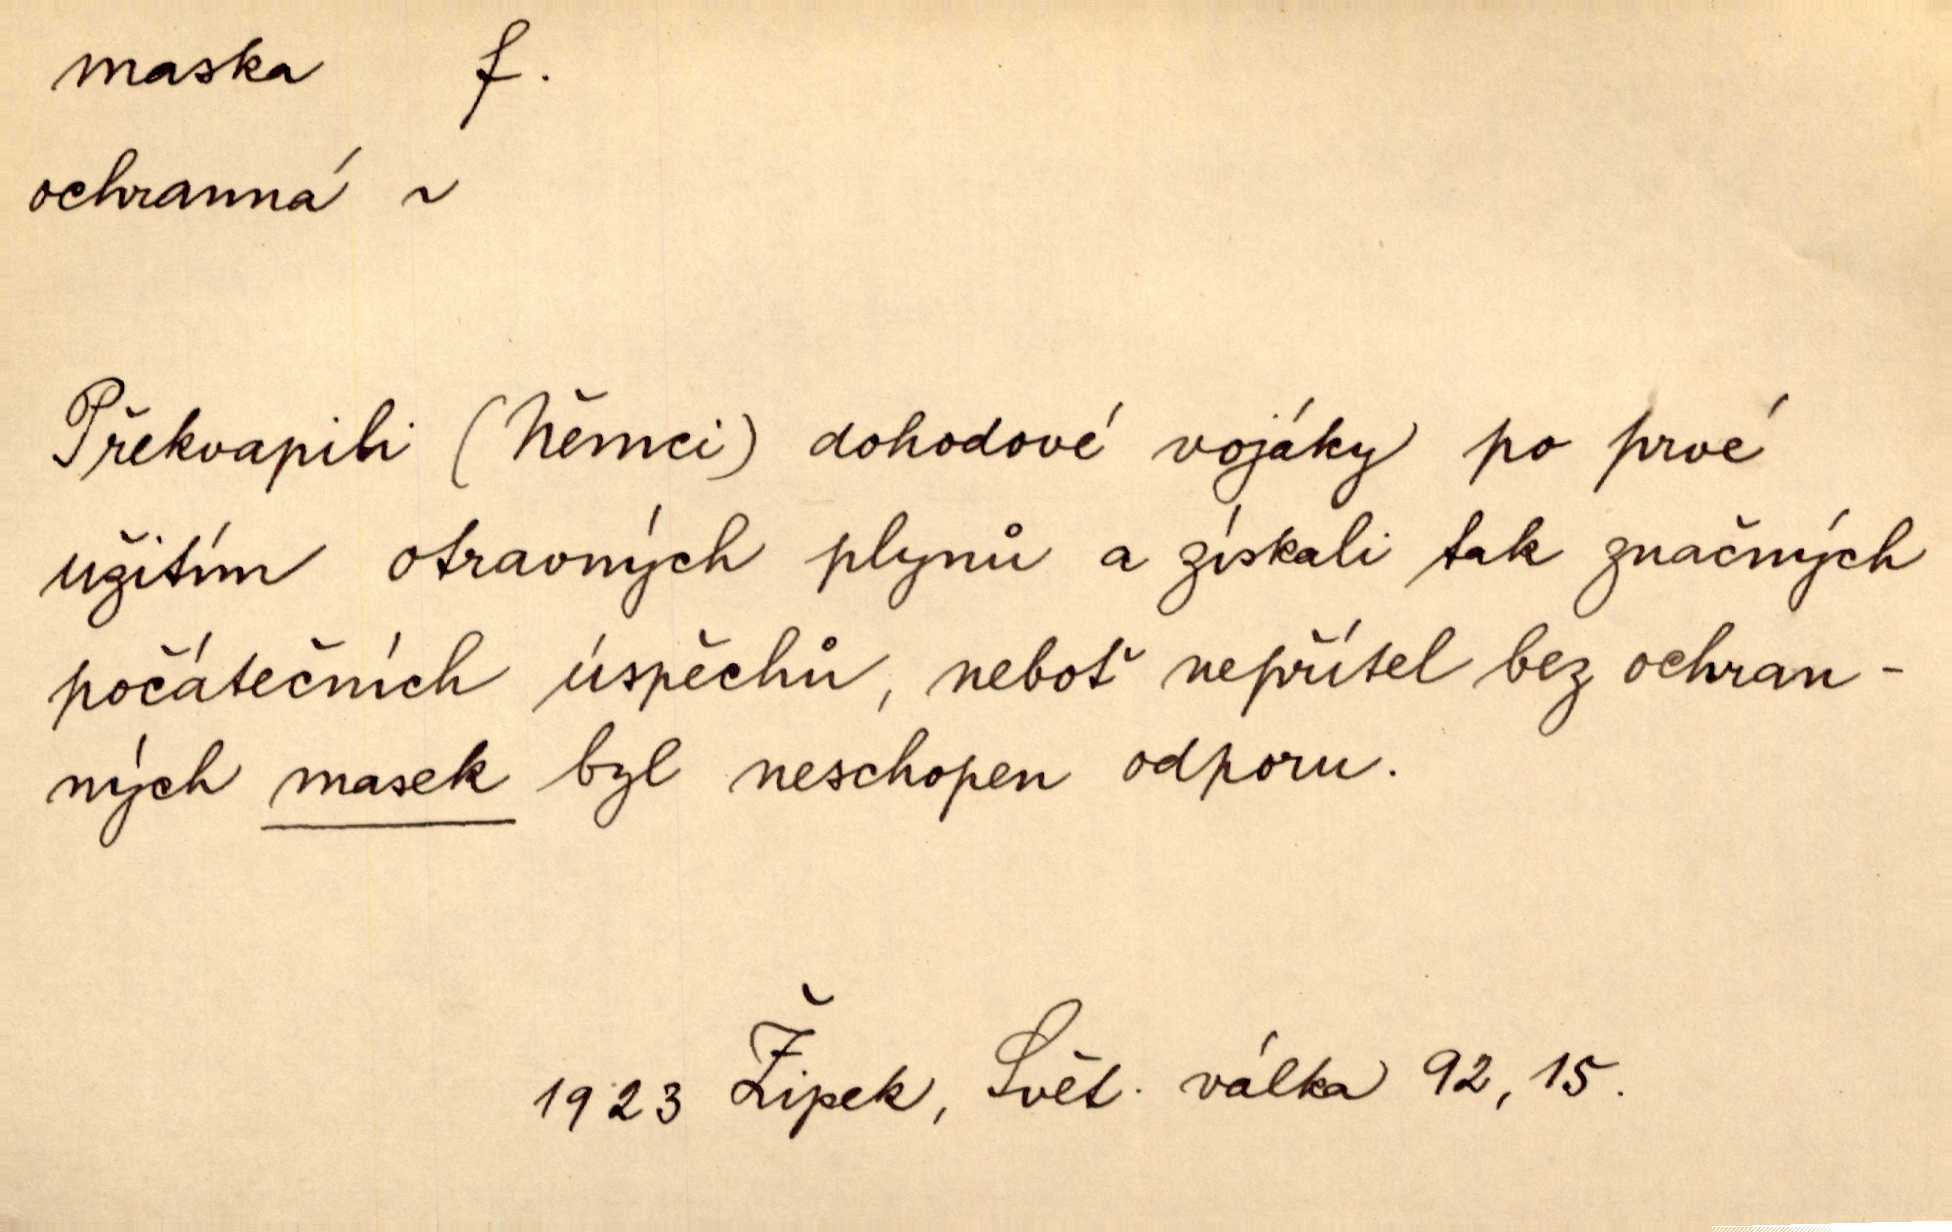 maska f.
ochranná ~
Překvapili (Němci) dohodové vojáky po prvé
užitím otravných plynů a získali tak značných
počátečních úspěchů, neboť nepřítel bez ochran-
ných masek byl neschopen odporu.
1923 Žipek, Svět. válka 92, 15.